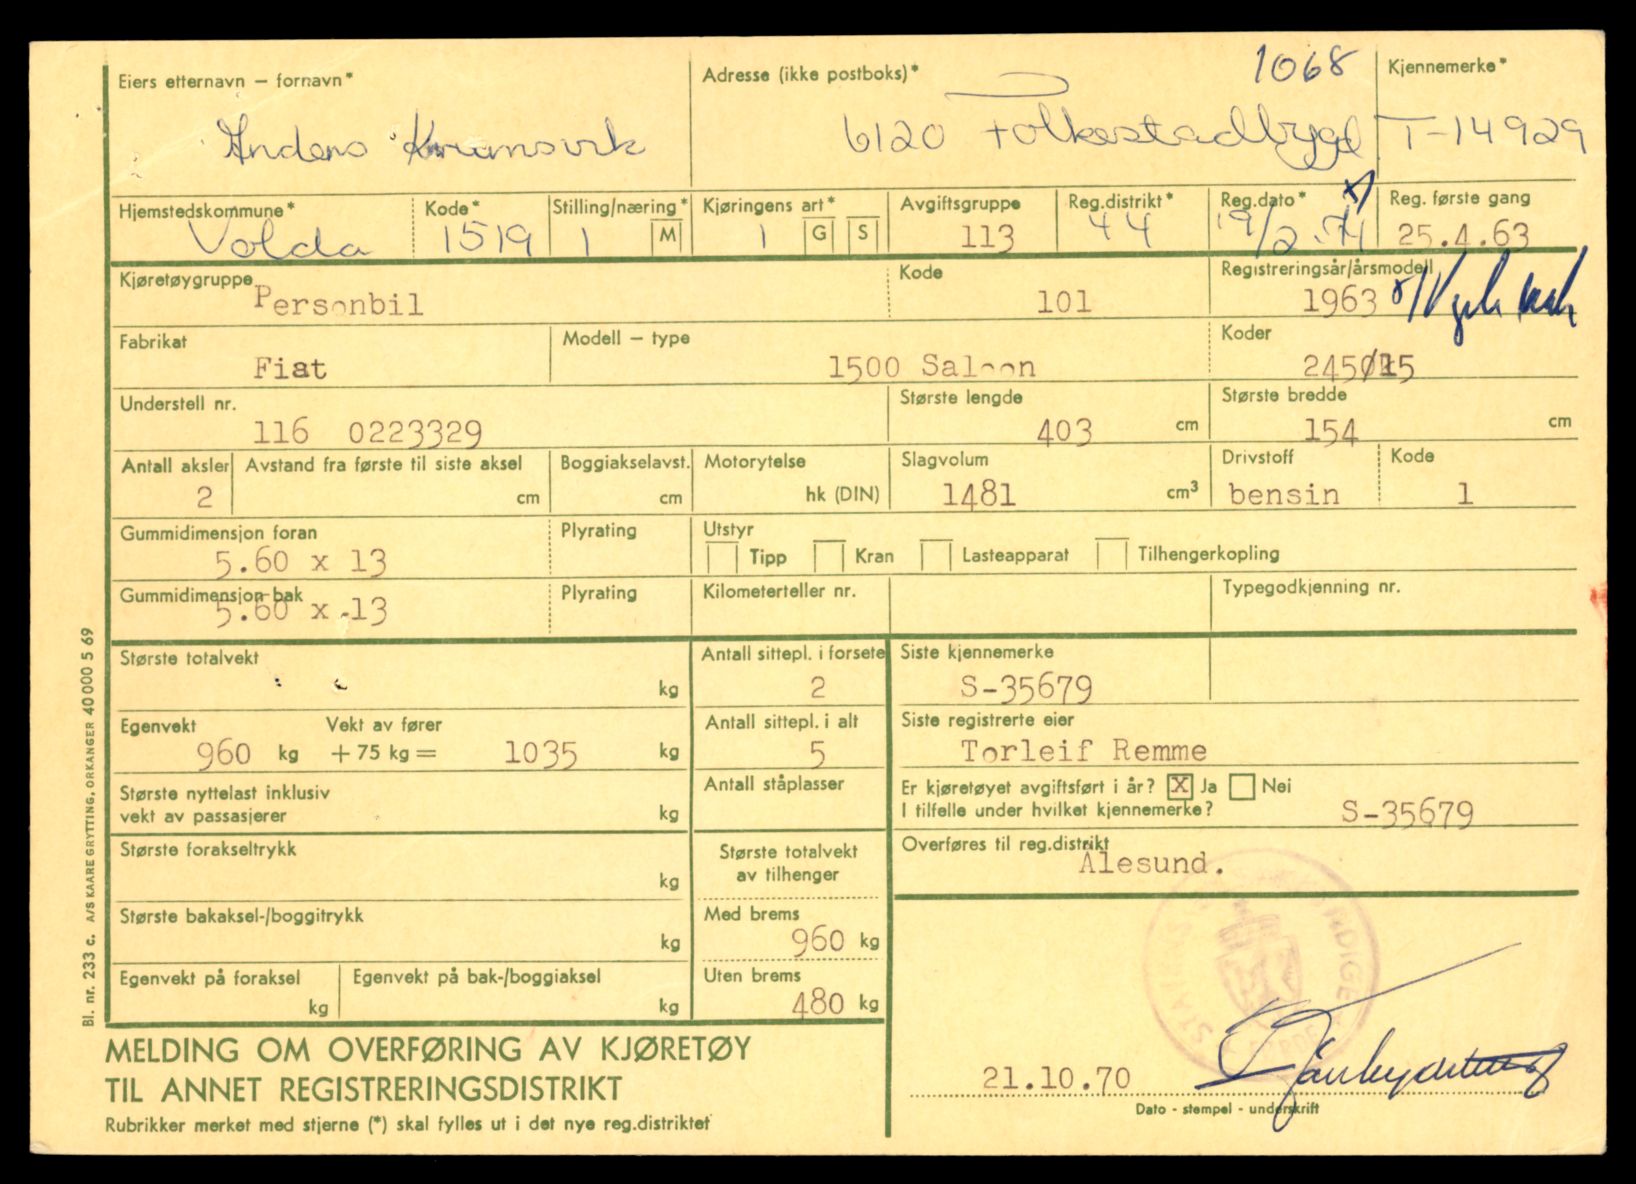 1068
Eiers etternavn – fornavn* Adresse (ikke postboks)* Kjennemerke*
Anders Krumsvik 6120 Folkestadbygd T-14929
Hjemstedskommune* Kode* Stilling/næring* Kjøringens art* Avgiftsgruppe Reg.distrikt* Reg.dato* x) Reg. første gang
Volda 1519 1 M 1 G S 113 44 19/2-71 25.4.63
Kjøretøygruppe Kode Registreringsår/årsmodell
Personbil 101 1963
Fabrikat Modell – type Koder
Fiat 1500 Saloon
Understell nr. Største lengde Største bredde
116 0223329 403 cm 154 cm
Antall aksler Avstand fra første til siste aksel Boggiakselavst. Motorytelse Slagvolum Drivstoff Kode
2 cm cm hk (DIN) 1481 cm³ bensin 1
Gummidimensjon foran Plyrating Utstyr
5.60 x 13 Tipp Kran Lasteapparat Tilhengerkopling
Gummidimensjon bak Plyrating Kilometerteller nr. Typegodkjenning nr.
5.60 x 13
Største totalvekt Antall sittepl. i forsete Siste kjennemerke
kg 2 S-35679
Egenvekt Vekt av fører Antall sittepl. i alt Siste registrerte eier
960 kg + 75 kg = 1035 kg 5 Torleif Remme
Største nyttelast inklusiv Antall ståplasser Er kjøretøyet avgiftsført i år? X Ja Nei
vekt av passasjerer kg I tilfelle under hvilket kjennemerke? S-35679
Største forakseltrykk Største totalvekt Overføres til reg.distrikt
kg av tilhenger Ålesund.
Største bakaksel-/boggitrykk Med brems
kg 960 kg
Egenvekt på foraksel Egenvekt på bak-/boggiaksel Uten brems
kg kg 480 kg
MELDING OM OVERFØRING AV KJØRETØY
TIL ANNET REGISTRERINGSDISTRIKT 21.10.70
Rubrikker merket med stjerne (*) skal fylles ut i det nye reg.distriktet Dato - stempel - underskrift
Bl. nr. 233 c. A/S KAARE GRYTTING, ORKANGER 40 000 5 69